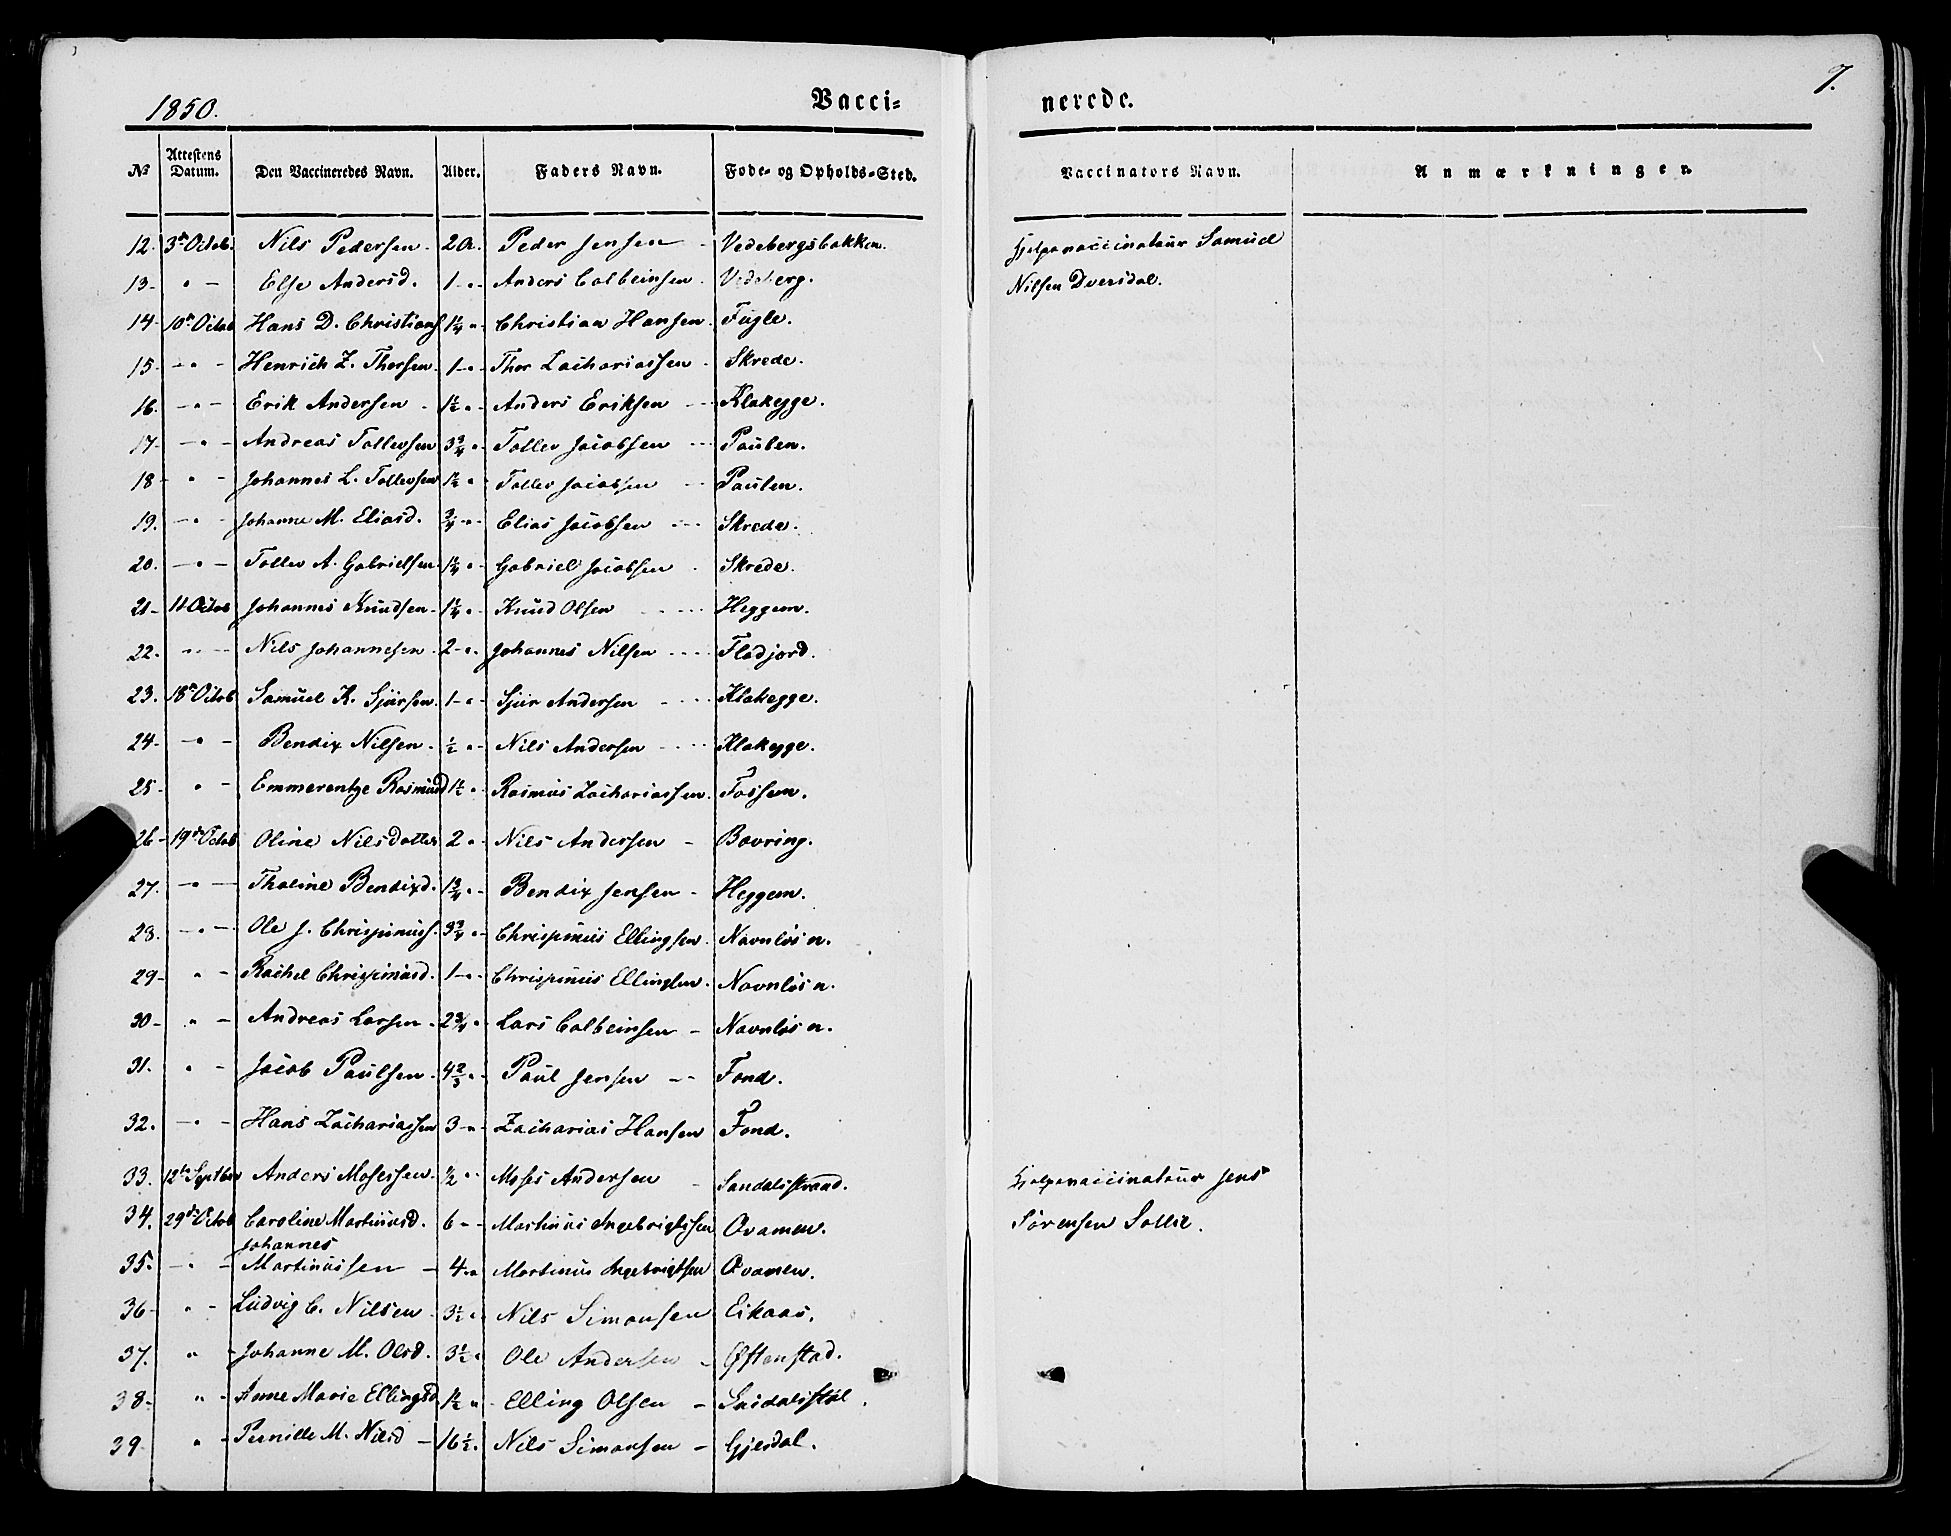 1850.
Vacci-
nerede.
7.
No Attestens Datum. Den Vaccineredes Navn. Alder. Faders Navn. Føde- og Opholds-Sted. Vaccinators Navn. Anmærkninger.
12. 3d Octob. Nils Pedersen. 2 A. Peder Jensen - Vedebergsbakken. Hjelpevaccinateur Samuel
13- " - Else Andersd. 1 - " - Anders Colbeinsen. Vedeberg. Nilsen Dversdal.
14- 10d Octob Hans D. Christians 1¼ " Christian Hansen. Fugle.
15- - " - Henrich Z. Thorsen. 1 - " - Thor Zachariassen - Skrede.
16. - " - Erik Andersen - 1½ " - Anders Eriksen --- Klakegge.
17- - " - Andreas Tollevsen 3¾ " - Tollev Jacobsen --- Paulen.
18- " - Johannes L. Tollevsen 1½ " Tollev Jacobsen -- Paulen.
19. - " - Johanne M. Eliasd. ¾ - " - Elias Jacobsen --- Skrede.
20. - " - Tollev A. Gabrielsen. 1¼ " - Gabriel Jacobsen - Skrede.
21- 11 Octob Johannes Knudsen. 1¼ " - Knud Olsen ---- Heggem.
22. " - Nils Johannesen. 2 - " - Johannes Nilsen ---- Flodjord.
23. 18d Octob Samuel K. Sjursen. 1 - " - Sjur Andersen ---- Klakegge.
24- - " - Bendix Nilsen. ½ " - Nils Andersen ---- Klakegge.
25- " - Emmerentze Rasmusd 1½ " - Rasmus Zachariassen. Fossem.
26- 19d Octob Oline Nilsdatter 2 " - Nils Andersen - Bovring.
27. - " - Thaline Bendixd. 1¾ " - Bendix Jensen - Heggem.
28. - " - Ole J. Chrispinus. 3¾ " - Chrispinus Ellingsen. Navnløs n.
29- " - Rachel Chrispinusd. 1 - " - Chrispinus Ellingsen. Navnløs n.
30- " - Andreas Larsen. 2¾ " Lars Colbeinsen - Navnløs n.
31. " - Jacob Paulsen. 4⅔ " - Paul Jensen -- Fond.
32. - " - Hans Zachariassen 3 - " Zacharias Hansen Fond.
33. 12te Septbr Anders Mosessen. ½ " - Moses Andersen - Sandalsstrand. Hjelpevaccinateur Jens
34. 29de Octob Caroline Martinusd. 6 - - Martinus Ingebrigtsen Ovamen. Sørensen Sollie.
Johannes
35. - " - Martinussen - 4 - " Martinus Ingebrigtsen Ovamen.
36- " - Ludvig C. Nilsen 3½ " Nils Simonsen Eikaas.
37. " - Johanne M. Olsd. 3½ " Ole Andersen - Øftenstad.
38- " - Anne Marie Ellingsd. 1½ " - Elling Olsen - Sandalsstøl.
39- " - Pernille M. Nilsd - 16½. Nils Simonsen - Gjesdal.